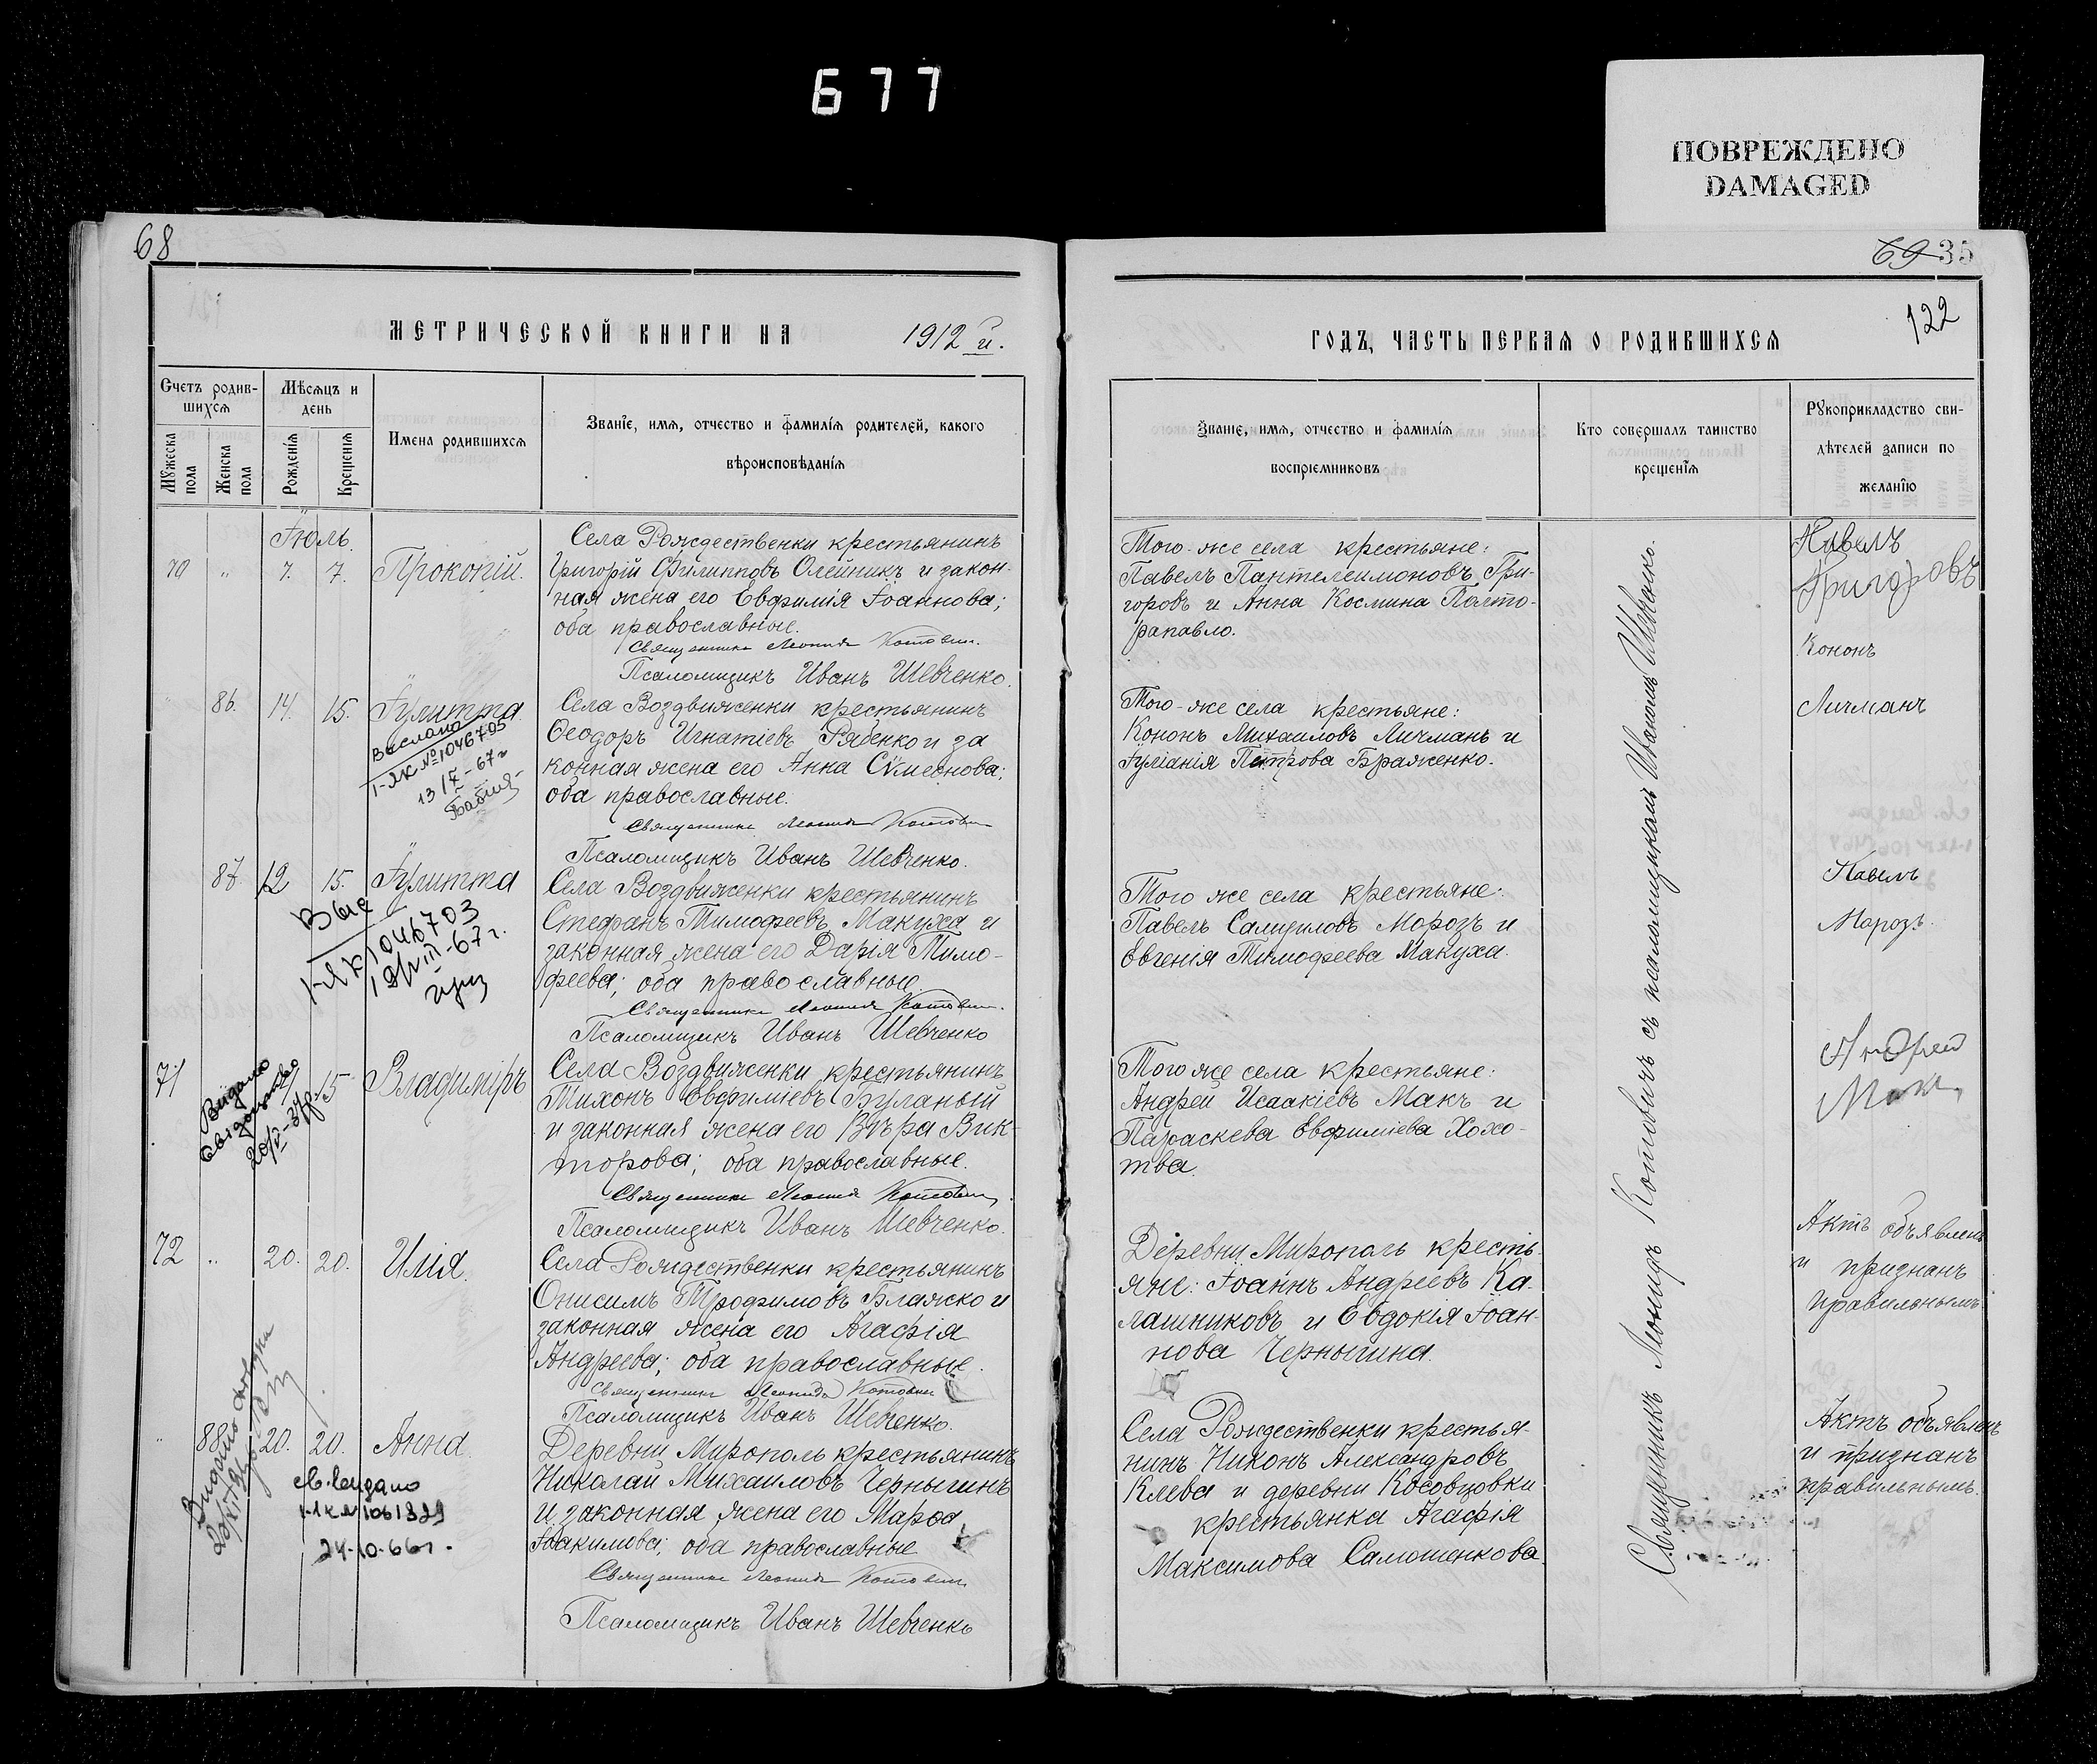 677
ПОВРЕЖДЕНО
DAMAGED
68
МЕТРИЧЕСКОЙ КНИГИ НА 1912й.
Счетъ родив-
шихся
Мѣсяцъ и
день
Мужеска
пола
Женска
пола
Рожденія
Крещенія
Имена родившихся
Званіе, имя, отчество и фамилія родителей, какого
вѣроисповѣданія
Іюль.
70 " 7. 7. Прокопій.
Села Рождественки крестьянинъ
Григорій Филипповъ Олейникъ и закон-
ная жена его Евфимія Іоаннова;
оба православные.
Священникъ Леонидъ Котовичъ.
Псаломщикъ Иванъ Шевченко.
" 86. 14. 15. Іулитта
Выслано
I-ЯК №1046705
Села Воздвиженки крестьянинъ
Ѳеодоръ Игнатіевъ Рябенко и за
конная жена его Анна Сѵмеонова;
оба православные.
Священникъ Леонидъ Котович
Псаломщикъ Иванъ Шевченко.
87. 12 15. Іулитта
I-ЯК 1046703
Села Воздвиженки крестьянинъ
Стефанъ Тимофеевъ Макуха и
законная жена его Дарія Тимо-
феева; оба православные.
Священникъ Леонидъ Котович.
Псаломщикъ Иванъ Шевченко
71 15 Владиміръ
Видано
свідоцтво
Села Воздвиженки крестьянинъ
Тихонъ Евфиміевъ Буланый
и законная жена его Вѣра Вик-
торова; оба православные.
Священникъ Леонидъ Котович
Псаломщикъ Иванъ Шевченко.
72 " 20. 20. Илія.
Села Рождественки крестьянинъ
Онисимъ Трофимовъ Блажко и
законная жена его Агафія
Андреева; оба православные.
Священникъ Леонидъ Котович
Псаломщикъ Иванъ Шевченко.
" 88 20. 20. Анна
Видано
св. выдано
I-ЯК № 1061329
24-10-66г.
Деревни Мирополь крестьянинъ
Николай Михаиловъ Чернышинъ
и законная жена его Марѳа
Іоакимова; оба православные
Священникъ Леонидъ Котович
Псаломщикъ Иванъ Шевченко
69 35
122
ГОДЪ, ЧАСТЬ ПЕРВАЯ О РОДИВШИХСЯ
Званіе, имя, отчество и фамилія
воспріемниковъ
Кто совершалъ таинство
крещенія
Рукоприкладство сви-
дѣтелей записи по
желанію
Того-же села крестьяне:
Павелъ Пантелеимоновъ Гри-
горовъ и Анна Космина Полто-
рапавло.
Павелъ
Григоровъ
Того-же села крестьяне:
Кононъ Михаиловъ Личманъ и
Іуліанія Петрова Браженко.
Кононъ
Личманъ
Того же села крестьяне:
Павелъ Самуиловъ Морозъ и
Евгенія Тимофеева Макуха.
Павелъ
Морозъ.
Того же села крестьяне:
Андрей Исаакіевъ Макъ и
Параскева Евфиміева Хохо-
тва.
Андрей
Макъ
Деревни Мирополь кресть-
яне: Іоаннъ Андреевъ Ка-
лашниковъ и Евдокія Іоан-
нова Чернышина.
Актъ объявленъ
и признанъ
правильнымъ.
Села Рождественки крестья-
нинъ Никонъ Александровъ
Клева и деревни Косовцовки
крестьянка Агафія
Максимова Самошенкова.
Актъ объявленъ
и признанъ
правильнымъ.
Священникъ Леонидъ Котовичъ съ псаломщикомъ Иваномъ Шевченко.